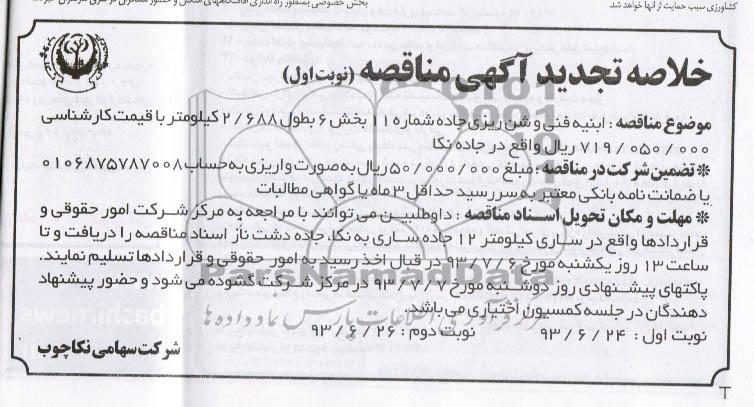 کشاورزی سبب حمایت از آنها خواهد شد
خلاصه تجدید آگهی مناقصه (نوبت اول)
موضوع مناقصه : ابنیه فنی و شن ریزی جاده شماره ۱۱ بخش ۶ بطول ۲/۶۸۸ کیلومتر با قیمت کارشناسی
۷۱۹/۰۵۰/۰۰۰ ریال واقع در جاده نکا
* تضمین شرکت در مناقصه : مبلغ ۵۰/۰۰۰/۰۰۰ ریال به صورت واریزی به حساب ۰۱۰۶۸۷۵۷۸۷۰۰۸
یا ضمانت نامه بانکی معتبر به سررسید حداقل ۳ ماه یا گواهی مطالبات
* مهلت و مکان تحویل اسناد مناقصه : داوطلبین می توانند با مراجعه به مرکز شرکت امور حقوقی و
قراردادها واقع در ساری کیلومتر ۱۲ جاده ساری به نکا، جاده دشت ناز اسناد مناقصه را دریافت و تا
ساعت ۱۳ روز یکشنبه مورخ ۹۳/۷/۶ در قبال اخذ رسید به امور حقوقی و قراردادها تسلیم نمایند.
پاکتهای پیشنهادی روز دوشنبه مورخ ۹۳/۷/۷ در مرکز شرکت گشوده می شود و حضور پیشنهاد
دهندگان در جلسه کمسیون اختیاری می باشد.
نوبت اول : ۹۳/۶/۲۴ نوبت دوم : ۹۳/۶/۲۶
شرکت سهامی نکاچوب
ParsNamadData
مرکز فرآوری اطلاعات پارس نماد داده ها